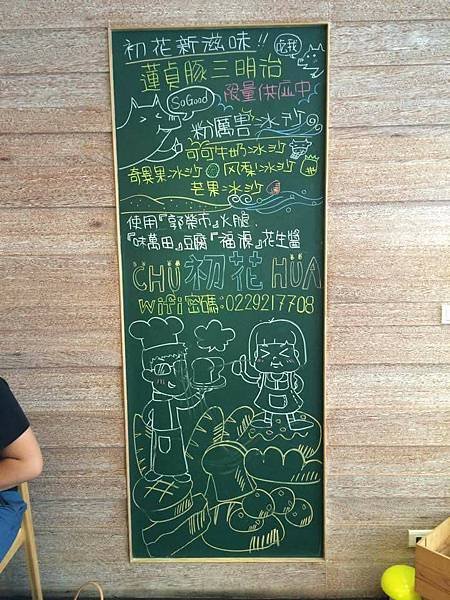 初花新滋味!!
吃我
蓮貞豚三明治
SoGood
限量供應中
粉厲害冰沙
可可牛奶冰沙
奇異果冰沙 风梨冰沙
芒果冰沙
使用『郭榮市』火腿.
『味萬田』豆腐『福源』花生醬
CHŪ 初花 HŪA
wifi密碼:0229217708